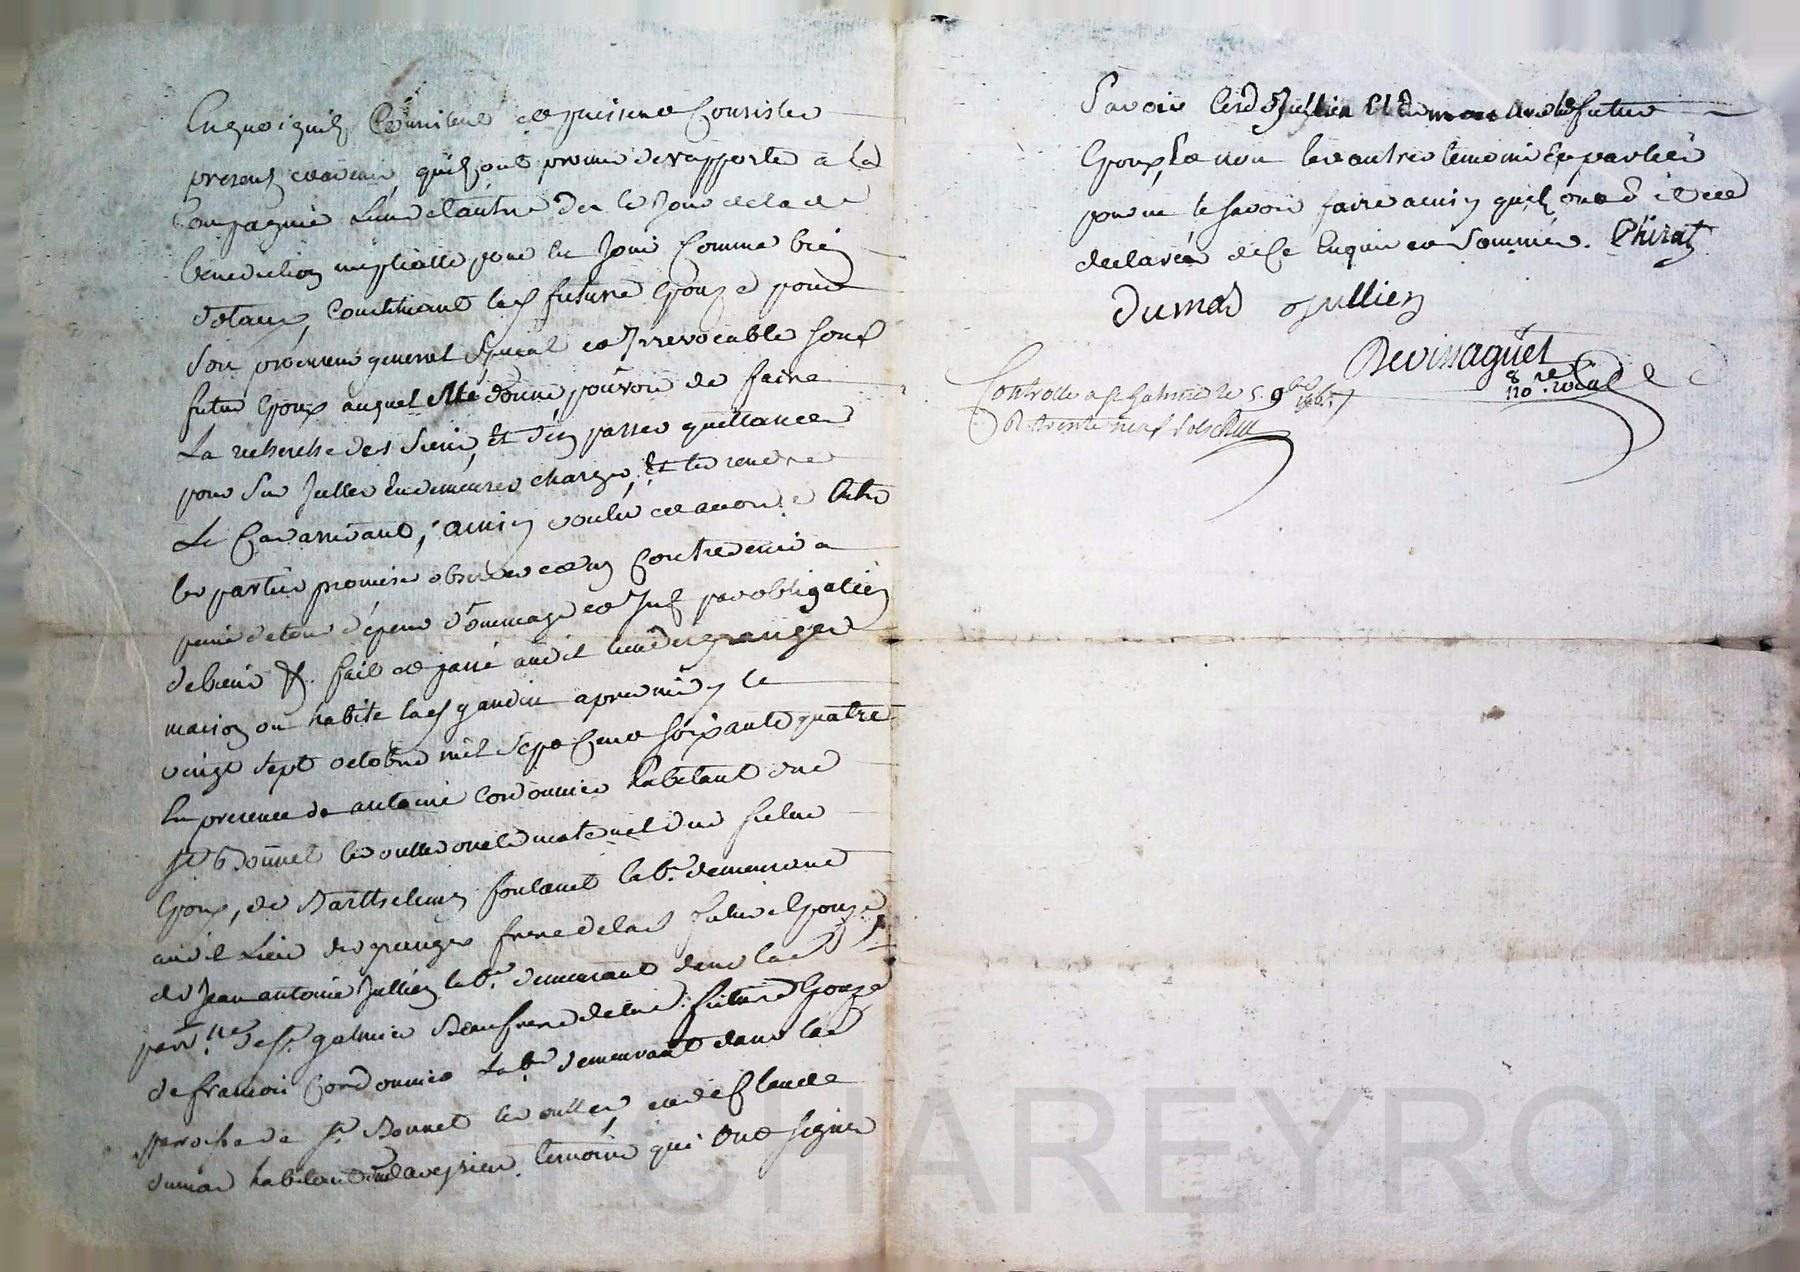 En quoi quilz Consistent et puissent Consister
presentz et avenir, quilz ont promis de rapporter a la
Compagnie Lun de lautre des le Jour de la de
benediction nuptialle pour en Jouir Comme bien
dotaux, Constituant lad. future Epouze pour
son procureur general special et Irrevocable sond.
futur Epoux auquel elle donne pouvoir de faire
La recherche des siens, Et d'en passer quittances
pour sur Icelles En demeurer charger, Et les rendre
Le Cas arrivant, ainsy voulu et accordé Entre
les parties promis observer et ny Contrevenir a
peine de tous depens dommage et Int. par obligation
de biens &. fait et passé audit lieu des granges
maison ou habite lad. gaudin apres midy le
vingt sept octobre mil Sept Cent soixante quatre
En presence de antoine Cordonnier habitant de
St. Bonnet les oulles oncle maternel dud. futur
Epoux, de Barthelemy fontanel lab.r demeurant
audit Lieu des granges frere de lad. future Epouze
de Jean antoine Jullien lab.r demeurant dans la
parr.lle de St. galmier Beaufrere de lad. future Epouze
de francois Cordonnier lab.r demeurant dans la
parroisse de St. Bonnet les oulles, et de Claude
dumas habitant de laveysieu temoins qui ont signé
Savoir lesd. Jullien Et dumas avec le futur
Epoux, Et non les autres temoins Ey parties
pour ne le savoir faire ainsy quilz ont dit et
declaré de ce Enquis et Sommés. Phirat
Dumas Jullien
Devissaguet
no.re royal
Controllé a St Galmier le 5 9bre 1764
R. trente neuf sols
CHAREYRON